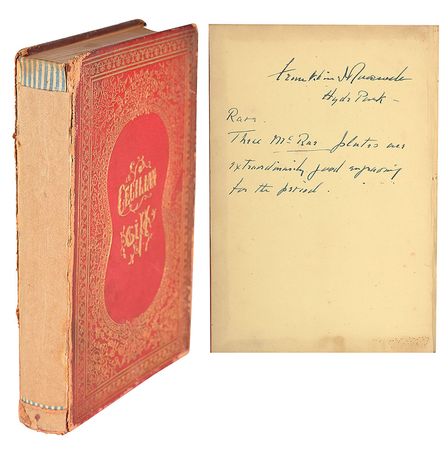 The
CECILIAN
GIFT
Franklin D Roosevelt
Hyde Park -
Rare.
These McRae plates are
extraordinarily good engraving
for the period.